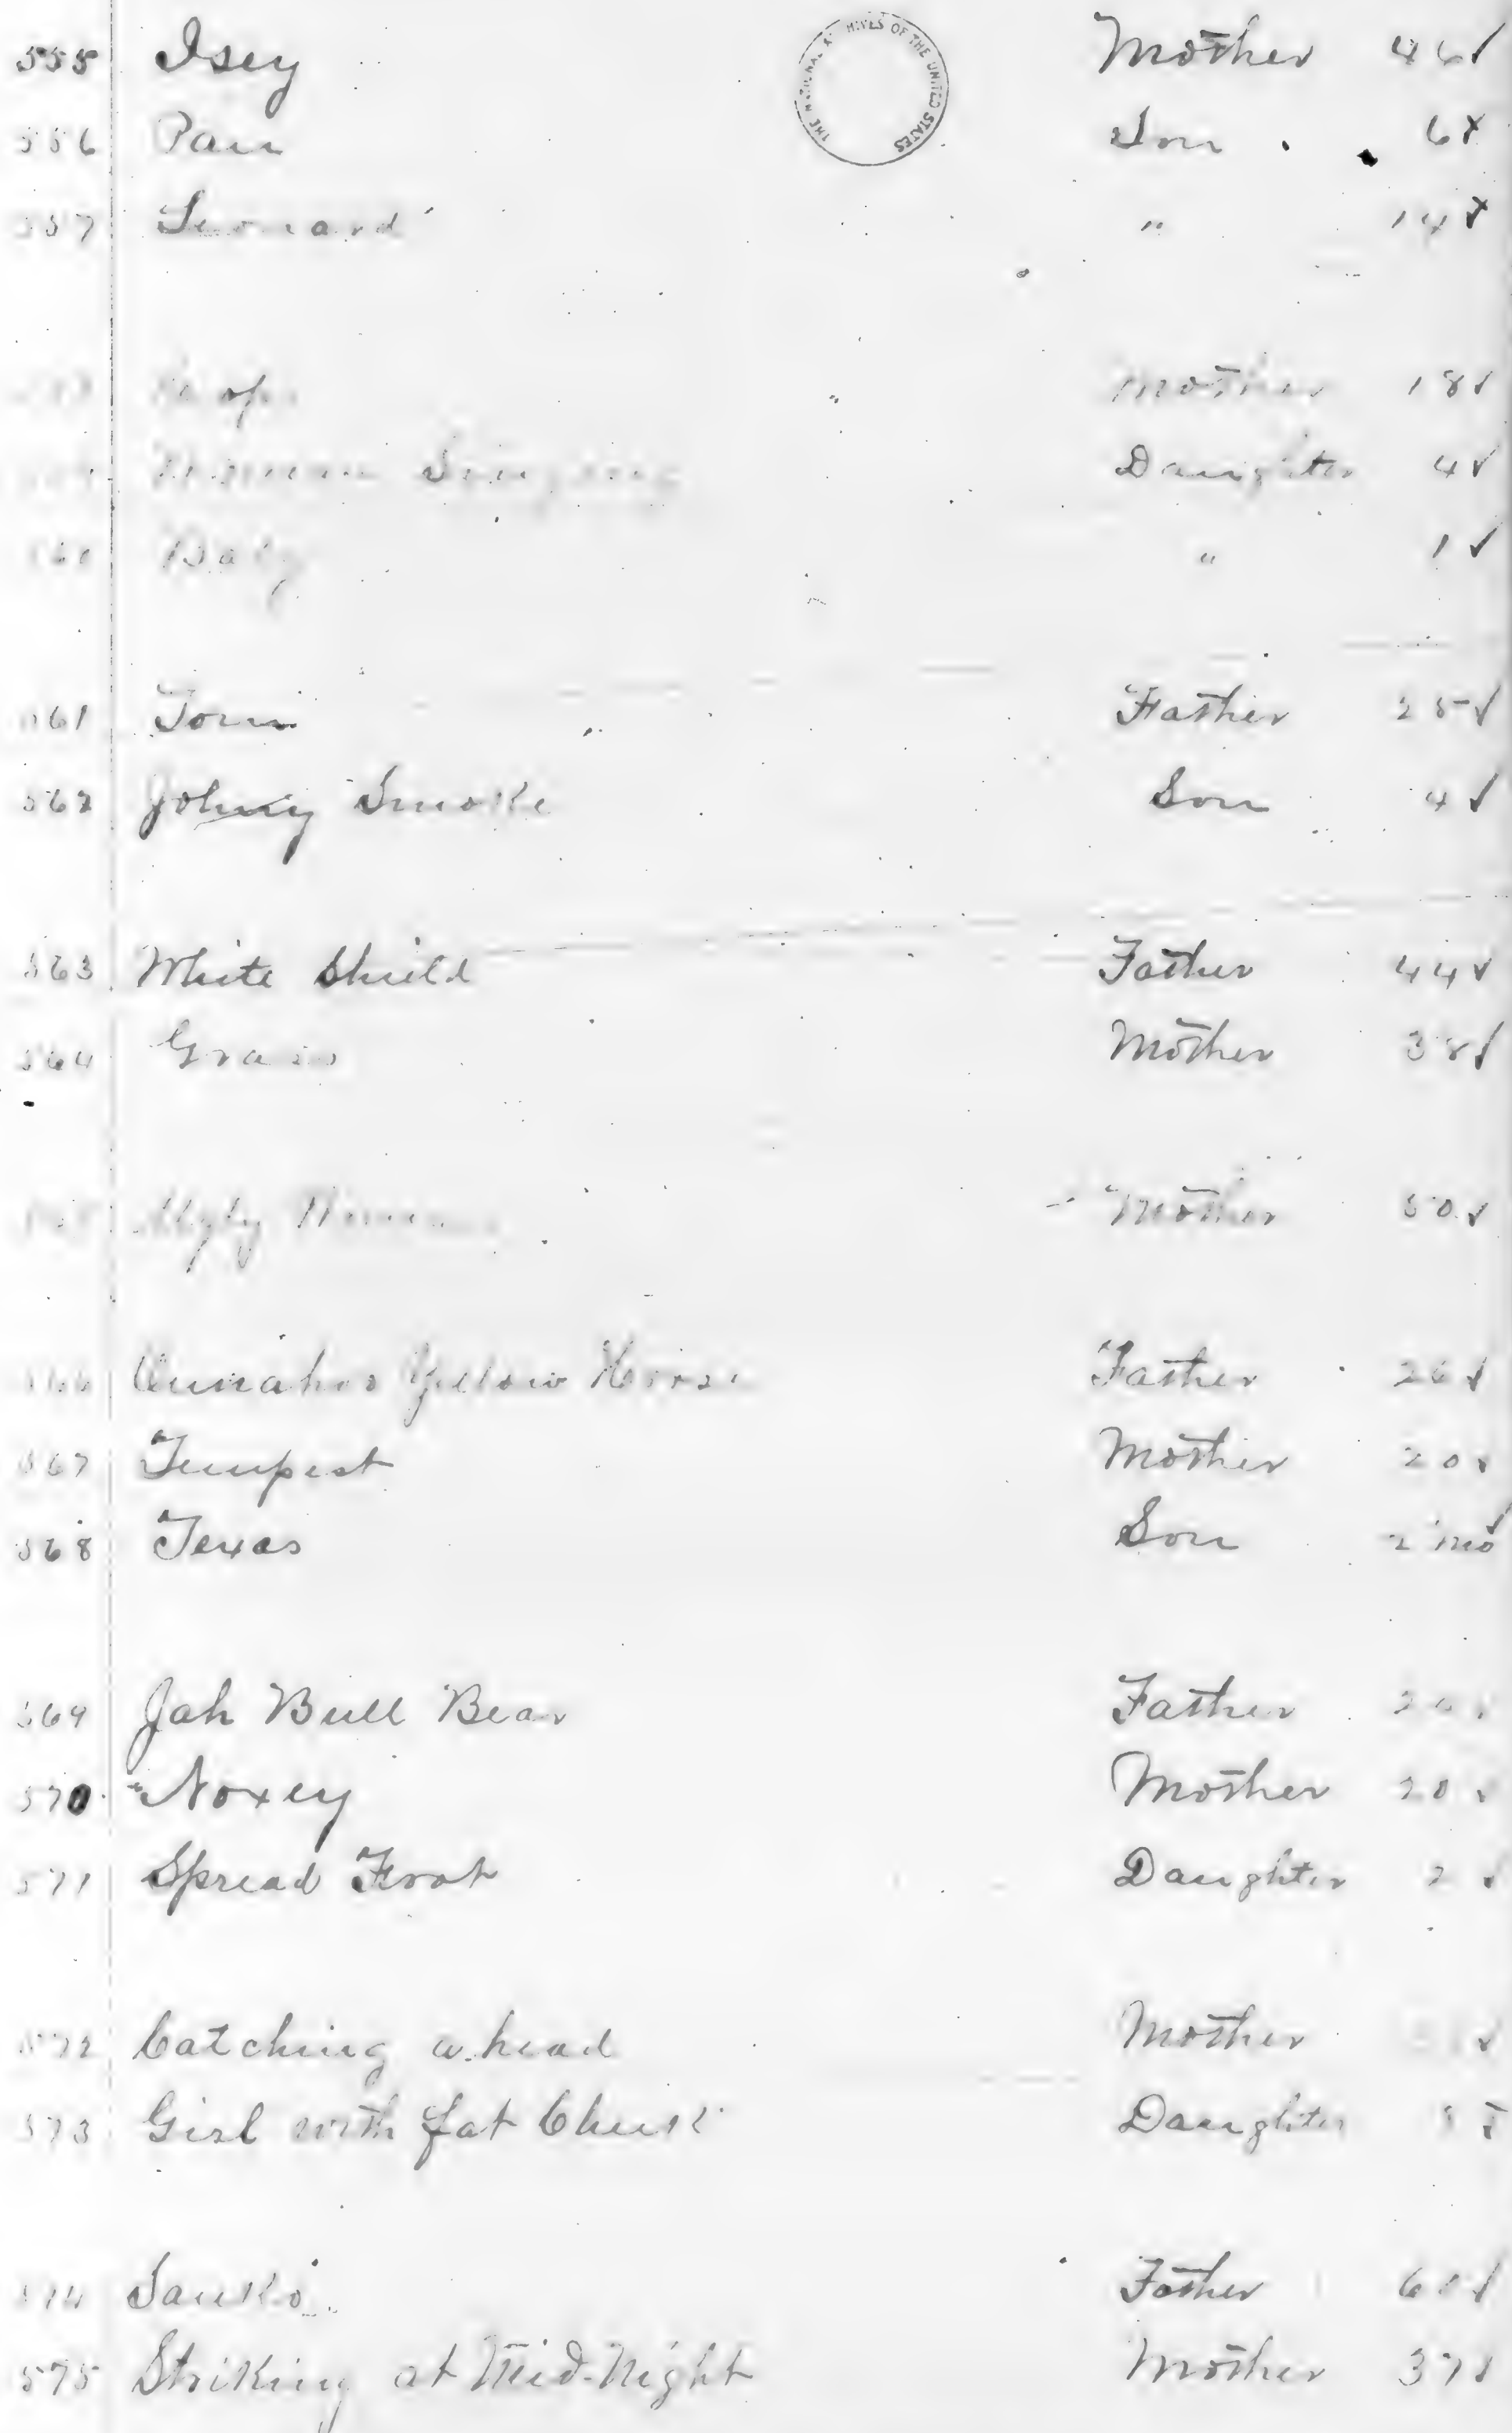 THE NATIONAL ARCHIVES OF THE UNITED STATES
555 Isey Mother 46 ✓
556 Pau Son 6 x
557 Leonard " 14 x
Mother 18 ✓
Daughter 4 ✓
560 Baby " 1 ✓
561 Tom Father 25 ✓
562 Johny Smoke Son 4 ✓
563 White Shield Father 44 ✓
564 Grass Mother 38 ✓
565 Ugly Mother 50 ✓
566 Yellow Horse Father 26 ✓
567 Tempest Mother 20 ✓
568 Texas Son 2 mo ✓
569 Jah Bull Bear Father
570 Noxey Mother 20 ✓
571 Spread Foot Daughter 2 ✓
572 Catching a head Mother ✓
573 Girl with fat Cheek Daughter
574 Sanko Father ✓
575 Striking at Mid-Night Mother 37 ✓